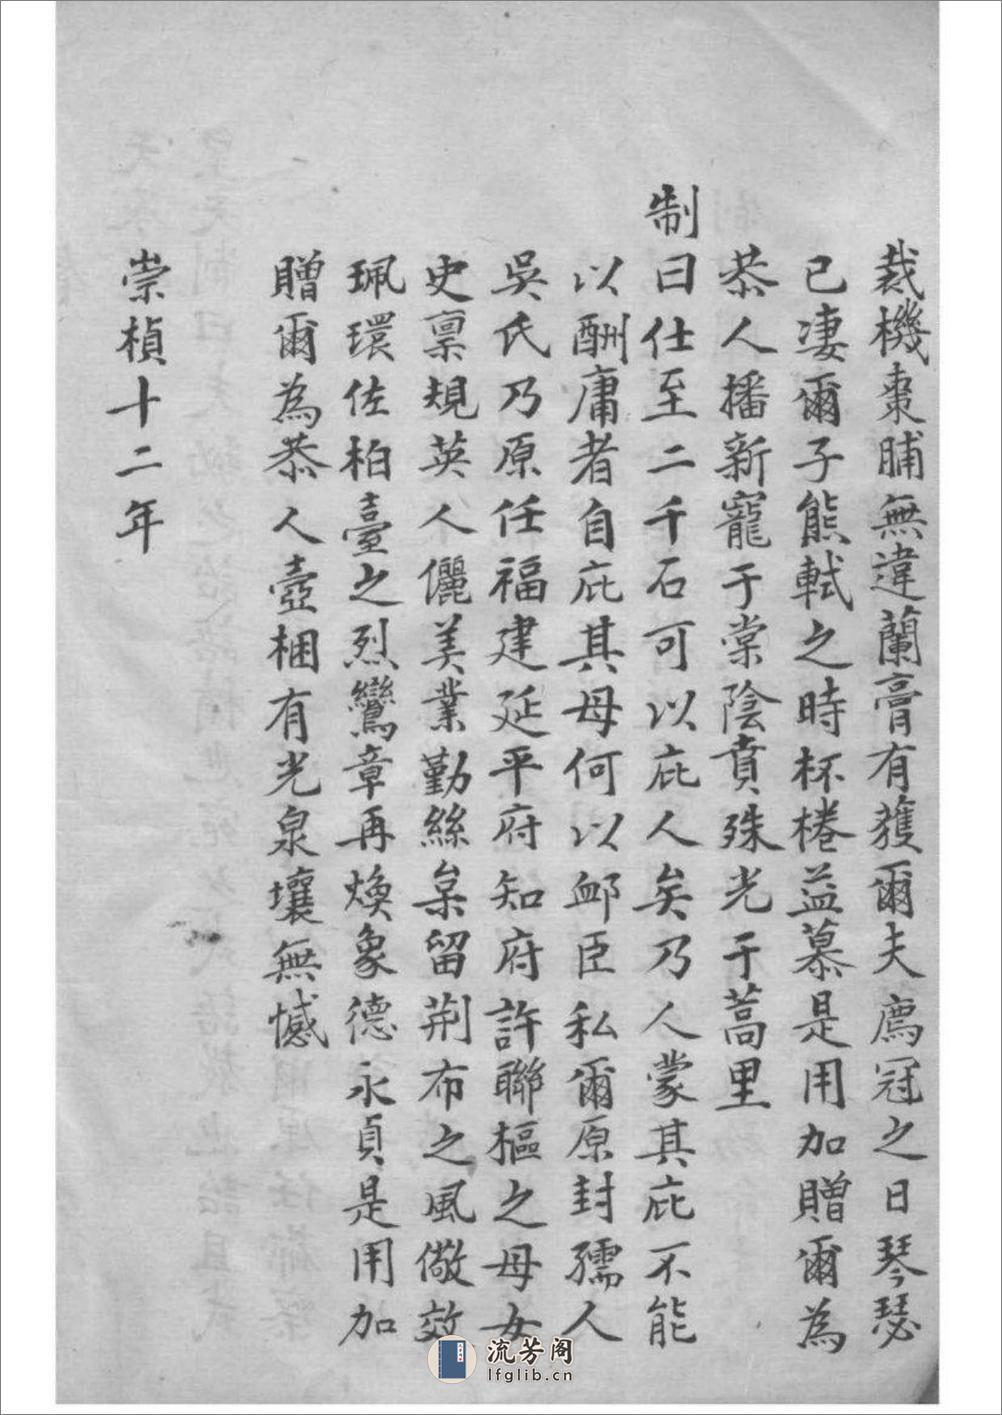 裁機棗脯無違蘭膏有獲爾夫廌冠之日琴瑟
已淒爾子熊軾之時杯棬益慕是用加贈爾為
恭人播新寵于棠陰賁殊光于蒿里
制
曰仕至二千石可以庇人矣乃人蒙其庇不能
以酬庸者自庇其母何以卹臣私爾原封孺人
吳氏乃原任福建延平府知府許聯樞之母女
史稟規英人儷美業勤絲枲留荆布之風儆效
珮環佐柏臺之烈鸞章再煥象德永貞是用加
贈爾為恭人壼梱有光泉壤無憾
崇楨十二年
流芳阁
lfglib.cn